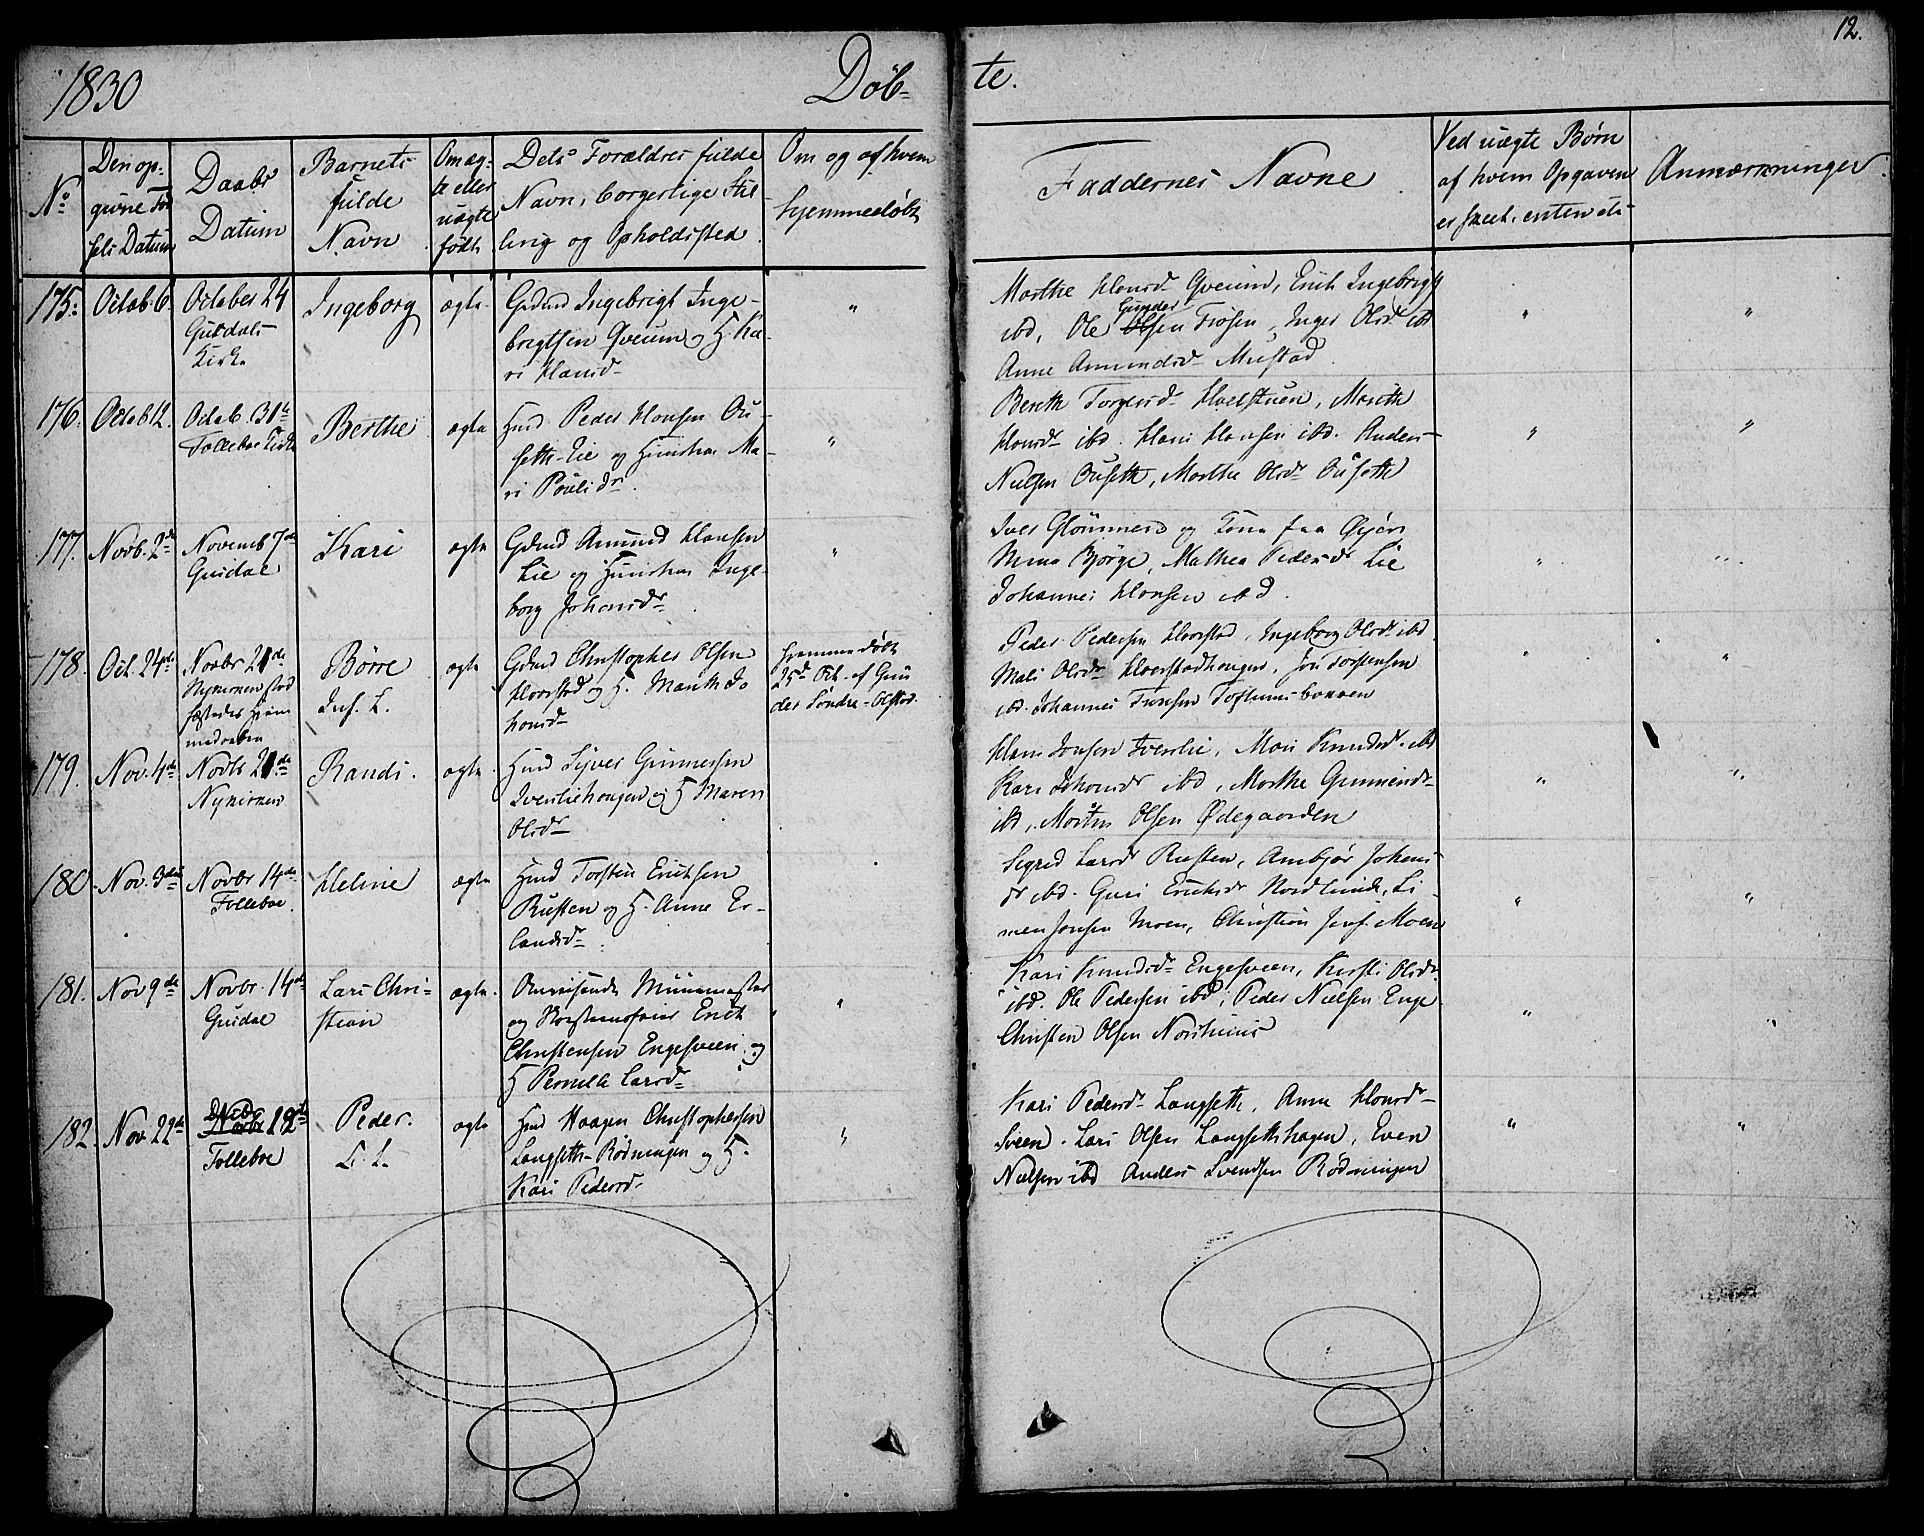 12.
1830 Døb-
te.
No
Den op-
givne Fød
sels Datum
Daabs
Datum
Barnets
fulde
Navn
Om æg-
te eller
uægte
født
Dets Forældres fulde
Navn, borgerlige Stil
ling og Opholdssted
Om og af hvem
hjemmedøbt
Faddernes Navne
Ved uægte Børn
af hvem Opgaven
er skeet, enten
Anmærkninger
175.
Octob. 6.
October 24
Gusdals
Kirke
Ingeborg
ægte
Gdmd Ingebrigt Inge-
brigtsen Qveum og H. Ka-
ri Hansd
"
Marthe Hansd Qveum, Erich Ingebrigt
ibd, Ole Gunder Olsen Frøsen, Inger Olsd ibd
Anne Amundsd Mustad
"
"
176.
Octob 12.
Octob. 31te
Folleboe Kirke
Berthe
ægte
Hmd Peder Hansen Ou-
seth-Lie og Hustrue Ma-
ri Poulsdr
"
Bereth Torgersd Haelstuen, Marith
Hansdr ibd. Hans Hansen ibd. Anders
Nielsen Ouseth, Marthe Olsdr Ouseth
"
"
177.
Novb. 2de
Novemb 7de
Gusdal
Kari
ægte
Gdmd Amund Hansen
Lie og Hustrue Inge-
borg Johansdr
"
Iver Glømmen og Kone
Bjørge, Mathea Pedersdr Lie
Johannes Hansen ibd.
"
"
178.
Oct. 24de
Novbr 21de
Nykirken stad
fæstedes Hjem
medaaben
Børre
Inf. L.
ægte
Gdmd Christopher Olsen
Haarstad og H. Marith Jo
hansd
Hjemmedøbt
25d Oct. af Gun
der Søndre-Olstad.
Peder Pedersen Haarstad, Ingeborg Olsdr ibd
Mali Olsdr Haarstadhougen, Jon Torstensen
ibd. Johannes
"
"
179.
Nov. 4de
Novbr 21de
Nykirken
Randi.
ægte.
Hmd Syver Gunnersen
Iverliehougen og H Maren
Olsdr
Hans Jonsen Iverlie, Mari Knudsdr ibd
Kari Johansdr ibd, Marthe Gunnersdr
ibd, Morten Olsen Ødegaarden
"
"
180.
Nov. 3die
Novbr 14de
Folleboe.
Heline
ægte
Hmd Torsten Erichsen
Rusten og H. Anne Er-
landsd
Sigred Larsdr Rusten, Ambjør Johans-
dr ibd. Guri Ericksdr Nordlunde, Si-
men Jonsen Moen, Christian Moen
"
"
181.
Nov 9de
Novbr. 14de
Gusdal
Lars Chri-
stian
ægte.
Omreisende Muurmester
og Skorstensfeier Erich
Christensen Engesveen og
H Pernille Larsdr
"
Kari Knudsdr Engesveen, Kirsti Olsdr
ibd. Ole Pedersen ibd, Peder Nielsen Enge
Christen Olsen
"
"
182.
Nov 22de
Decbr
Novbr 12te
Folleboe
Peder.
L. L.
ægte
Hmd Haagen Christophersen
Langseth-Rødningen og H.
Kari Pedersd
"
Kari Pedersd Langseth, Anne Hansd
Sveen. Lars Olsen Langsethhagen, Even
Nielsen ibd Anders Svendsen Rødningen
"
"